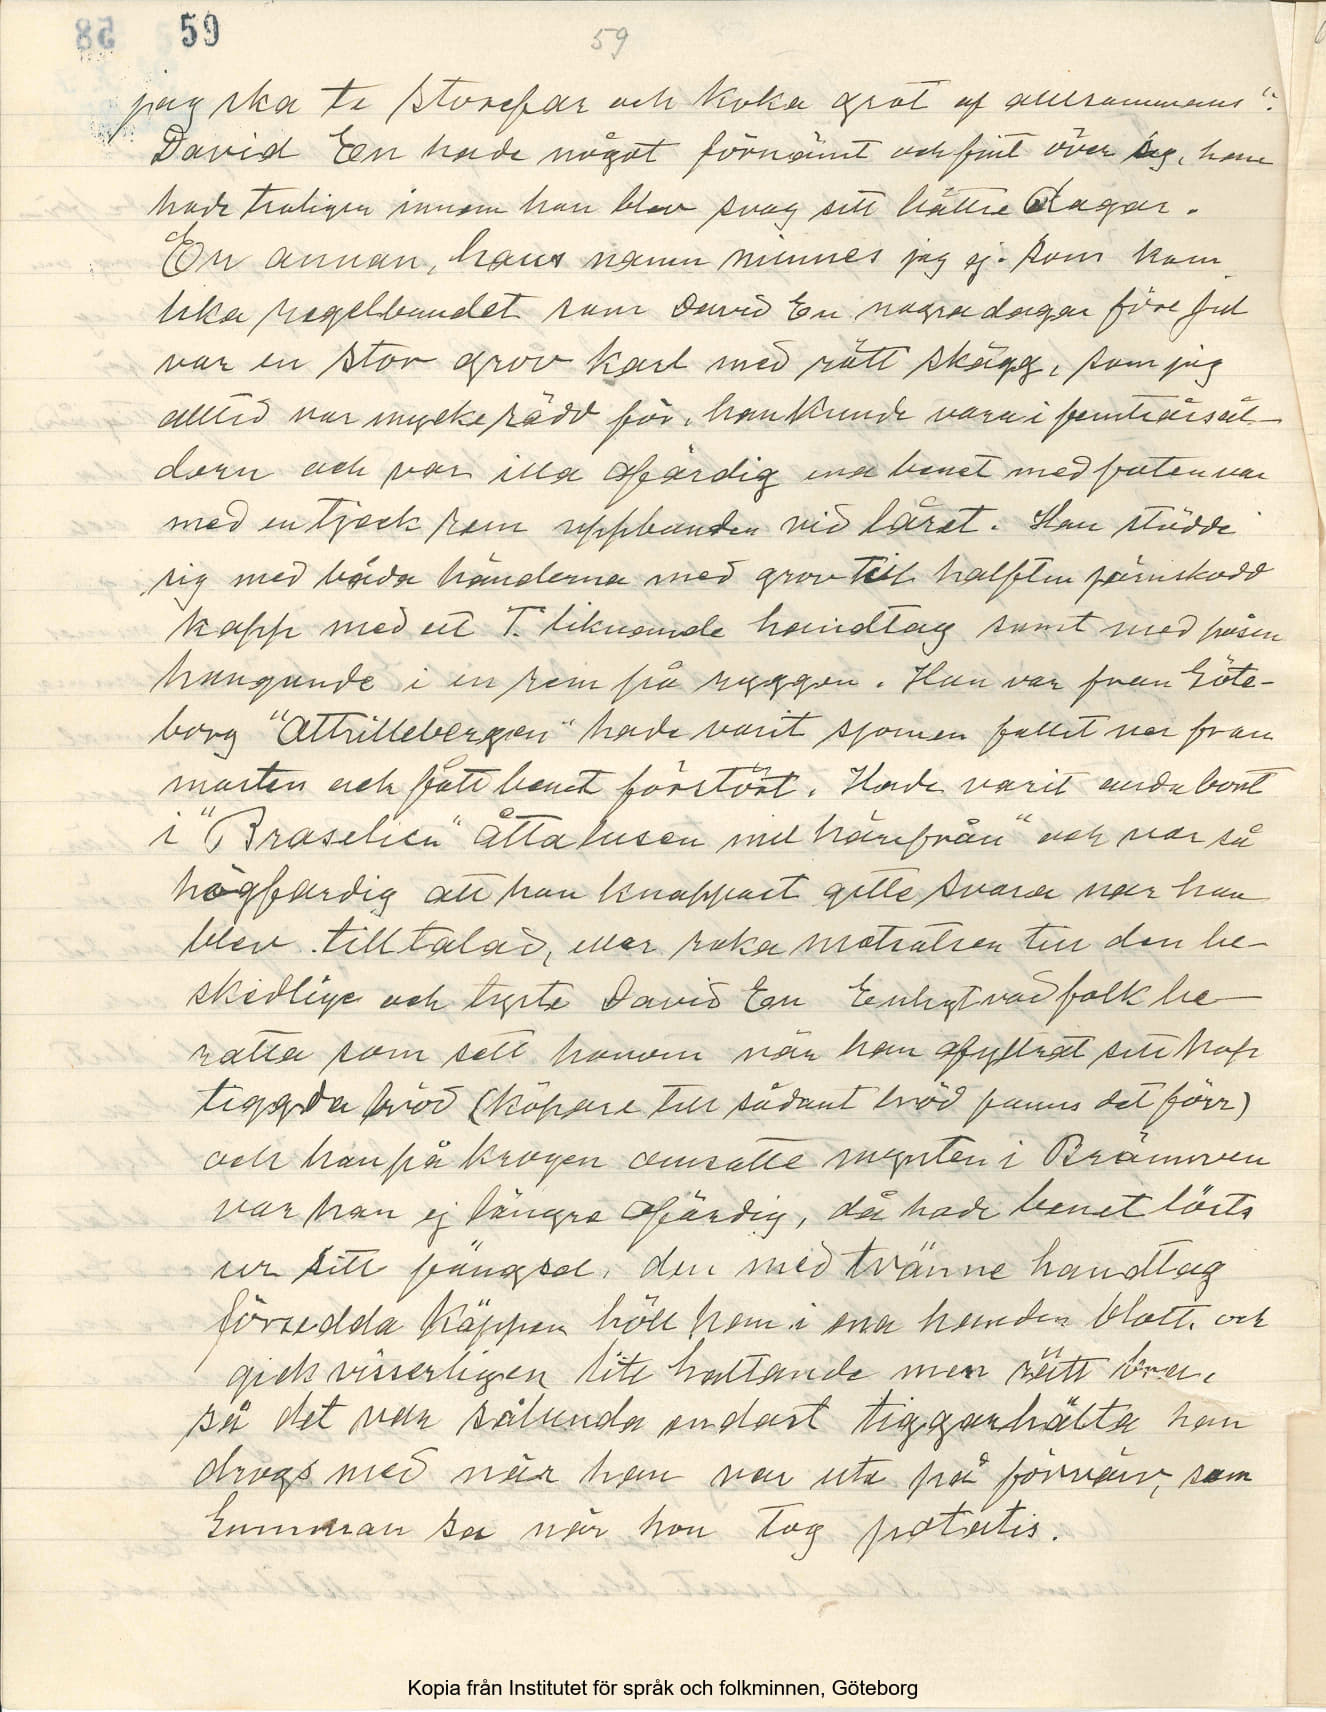 59
59
jag ska ta storefar och koka gröt af alltsammans".
David En hade något förnämt och fint över sig, han
hade troligen innan han blev svag sett bättre dagar.
En annan, hans namn minnes jag ej. som kom
lika regelbundet som David En nogra dagar före Jul
var en stor grov karl med rött skägg, som jag
alltid var mycke rädd för, han kunde vara i femtiårsål-
dern och var illa ofärdig ena benet med foten var
med en tjock rem uppbunden vid låret. Han stödde
sig med båda händerna med grov till halften järnskodd
kapp med ett T. liknande handtag samt med påsen
hangande i en rem på ryggen. Han var fran Göte-
borg "Attrillebergen" hade varit sjoman fallit ner fran
masten och fått benet förstört. Hade varit anda bort
i "Braselien" åtta tusen mil härefrån" och var så
högfardig att han knappast gitte svara nar han
blev tilltalad, mer raka motsatsen till den be-
skedlige och tyste David En Enligt vad folk be-
ratta som sett honom när han afyttrat sitt hop
tiggda bröd (köpare till sådant bröd fanns det förr)
och han på krogen omsatte mynten i Brännven
var han ej längre ofärdig, då hade benet lösts
ur sitt fängsel, den med tvänne handtag
försedda käppen höll han i ena handen blott. och
gick visserligen lite haltande men rätt bra,
så det var sålunda endast tiggarhälta han
drogs med när han var ute på förvärv, som
Enmman sa när hon tog potatis.
Kopia från Institutet för språk och folkminnen, Göteborg